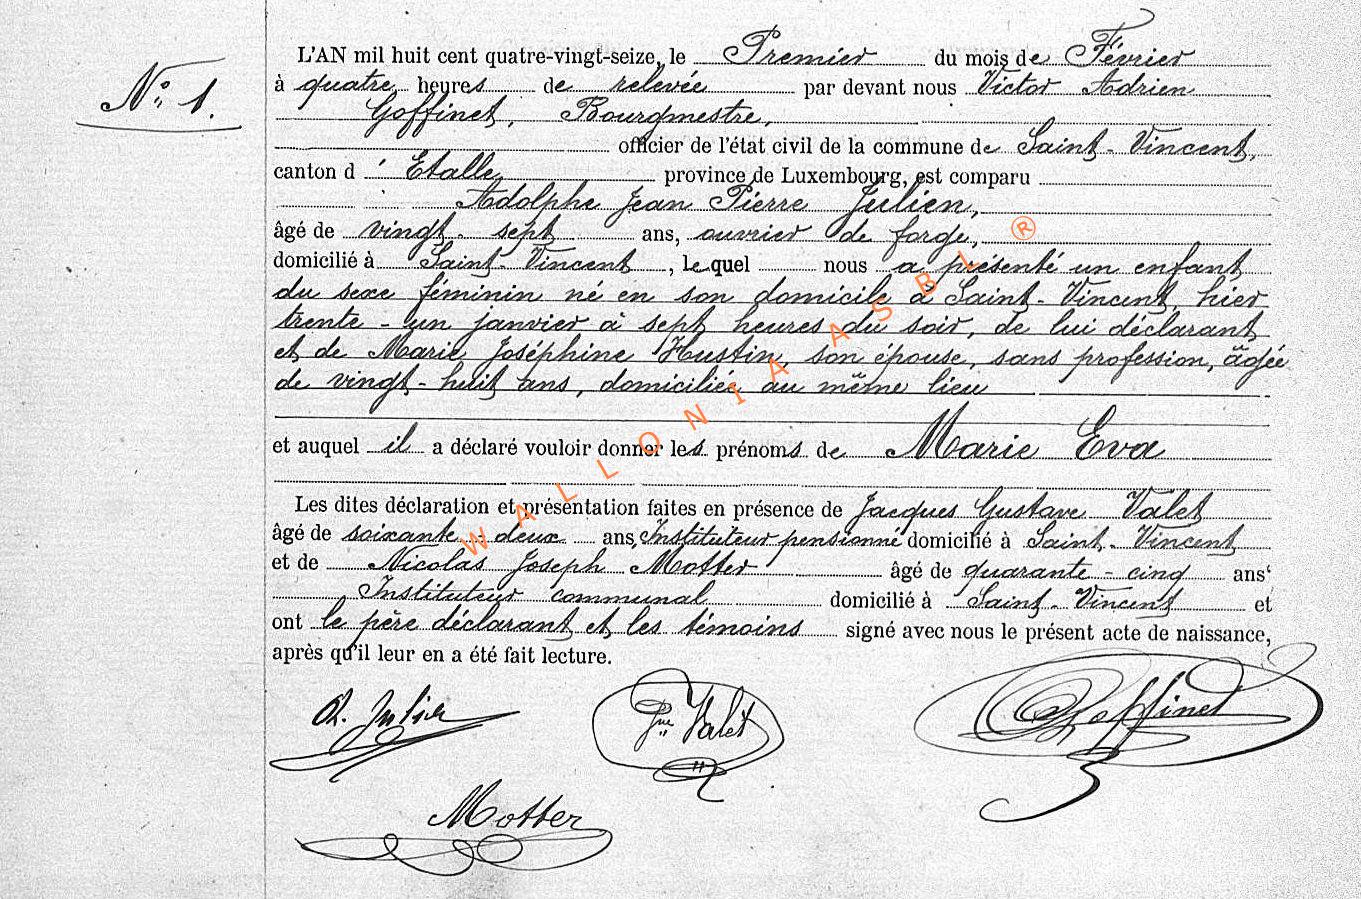 N° 1.
L'AN mil huit cent quatre-vingt-seize, le Premier du mois de Février
à quatre heures de relevée par devant nous Victor Adrien
Goffinet, Bourgmestre,
officier de l'état civil de la commune de Saint-Vincent,
canton d'Etalle province de Luxembourg, est comparu
Adolphe Jean Pierre Julien,
âgé de vingt-sept ans, ouvrier de forge,
domicilié à Saint-Vincent, lequel nous a présenté un enfant
du sexe féminin né en son domicile à Saint-Vincent, hier
trente-un janvier à sept heures du soir, de lui déclarant
et de Marie Joséphine Hustin, son épouse, sans profession, âgée
de vingt-huit ans, domiciliée au même lieu
et auquel il a déclaré vouloir donner les prénoms de Marie Eva
Les dites déclaration et présentation faites en présence de Jacques Gustave Valet
âgé de soixante-deux ans, Instituteur pensionné domicilié à Saint-Vincent
et de Nicolas Joseph Motter âgé de quarante-cinq ans
Instituteur communal domicilié à Saint-Vincent et
ont le père déclarant et les témoins signé avec nous le présent acte de naissance,
après qu'il leur en a été fait lecture.
A. Julien
Valet
Goffinet
Motter
WALLONIA ASBL ®